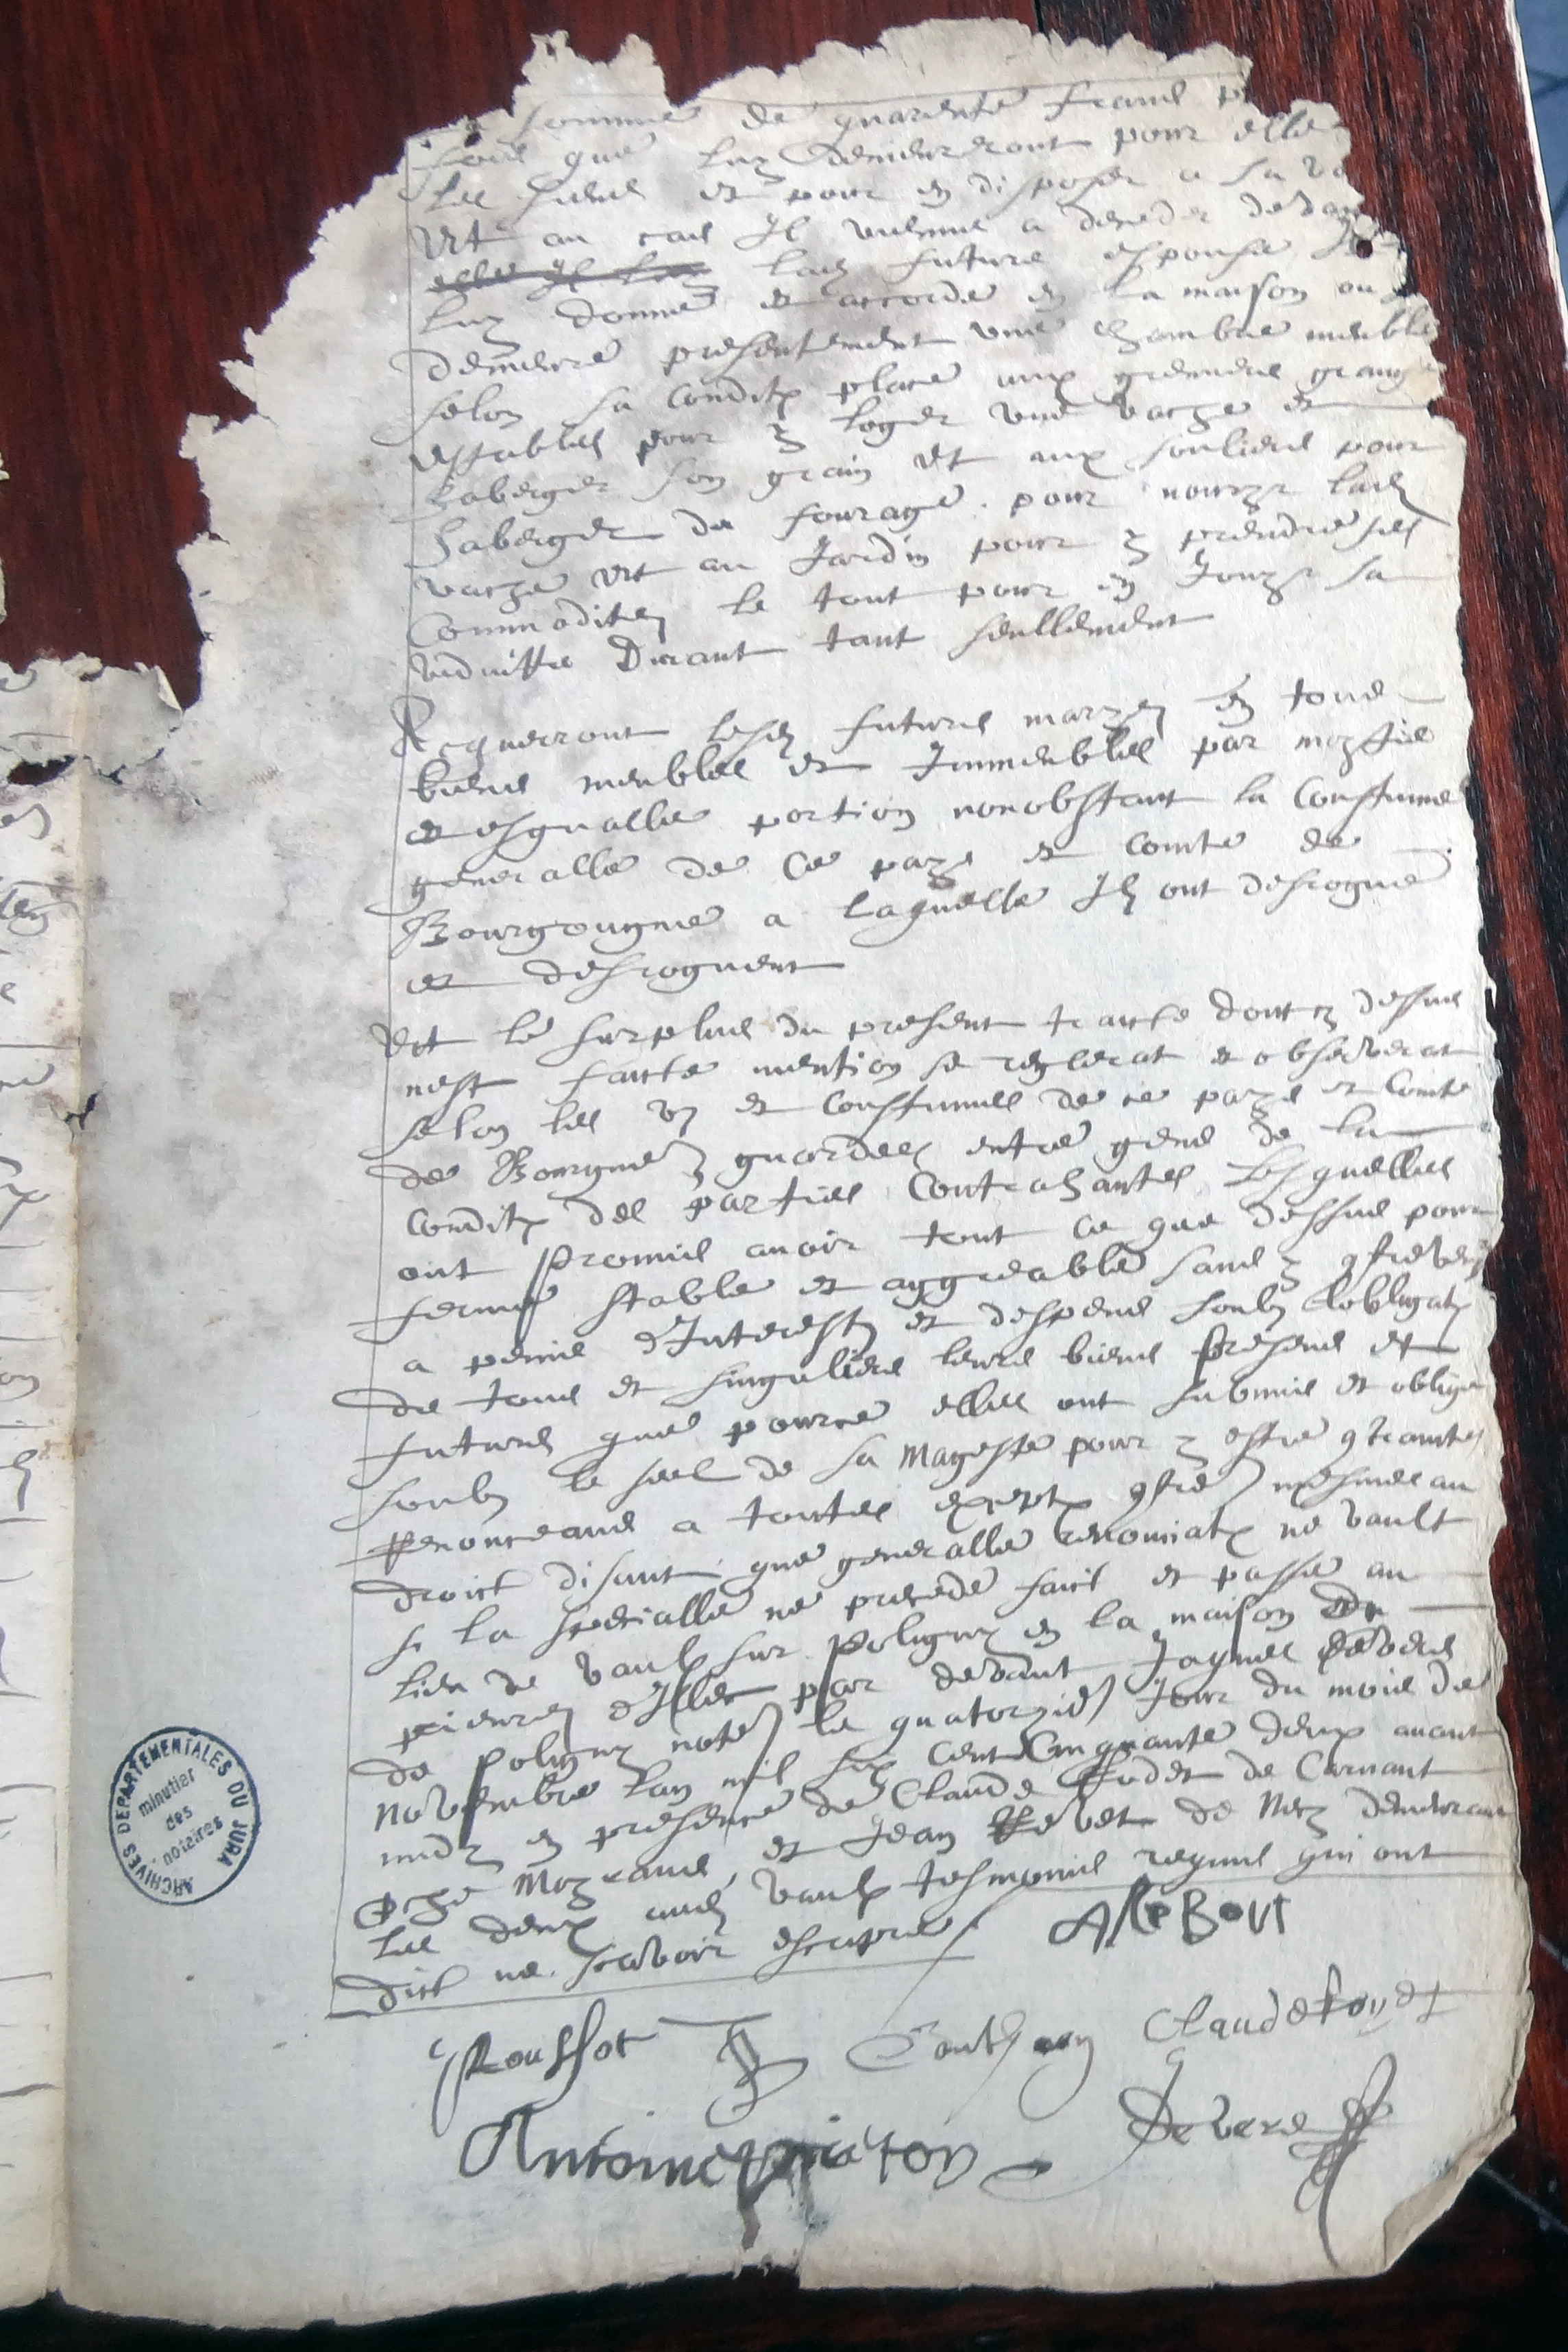 somme de quarente francs
fois que luy demeureront pour elle
les siens et pour en disposer a sa vo
Et au cas Il vienne a deceder devan
lad future espouse
luy donne et accorde en la maison ou
demeure presentement une chambre meuble
selon sa condit place aux greniers grange
estables pour y loger une vache et
haberger son grain Et aux souliers pour
haberger du fourage pour nouryr lad
vache Et au Jardin pour y prendre ses
Commoditez le tout pour en Jouyr sa
viduitte Durant tant seullement
Acquerront lesd futurs maryez en tous
biens meubles et Immeubles par moytie
et esgualle portion nonobstant la Coustume
generalle de Ce pays et comte de
Bourgougne a laquelle Ilz ont desrogue
et desroguent
Et le surplus du present traicte dont cy dessus
nest faicte mention se reglerat et observerat
selon les us et Coustumes de ce pays et Comte
de Bourgne guardees entre gens de la
condit des parties Contrahantes Lesquelles
ont Promis avoir tout ce que dessus pour
ferme stable et aggreable sans y
a peine d'Interestz et despens soubz Lobligat
de tous et singuliers leurs biens presens et
futurs que pource elles ont submis et oblige
soubz le seel de sa Mageste pour y estre
Renonceans a toutes except mesmes au
droict disant que generalle renonciat ne vault
si la specialle ne precede faict et passe au
lieu de vaulx sur Poligny en la maison du
d'Illec par devant Jaques Devers
de Poligny le quatorzie Jour du mois de
Novembre lan mil six cent Cinquante deux avant
midy en presence de Claude de Carnant
et Jean de Mez demeurant
les deux aud vaulx tesmoins requis qui ont
dict ne scavoir escripre
Roussot
Claude
Antoine
Devers
ARCHIVES DEPARTEMENTALES DU JURA
minutier
des
notaires